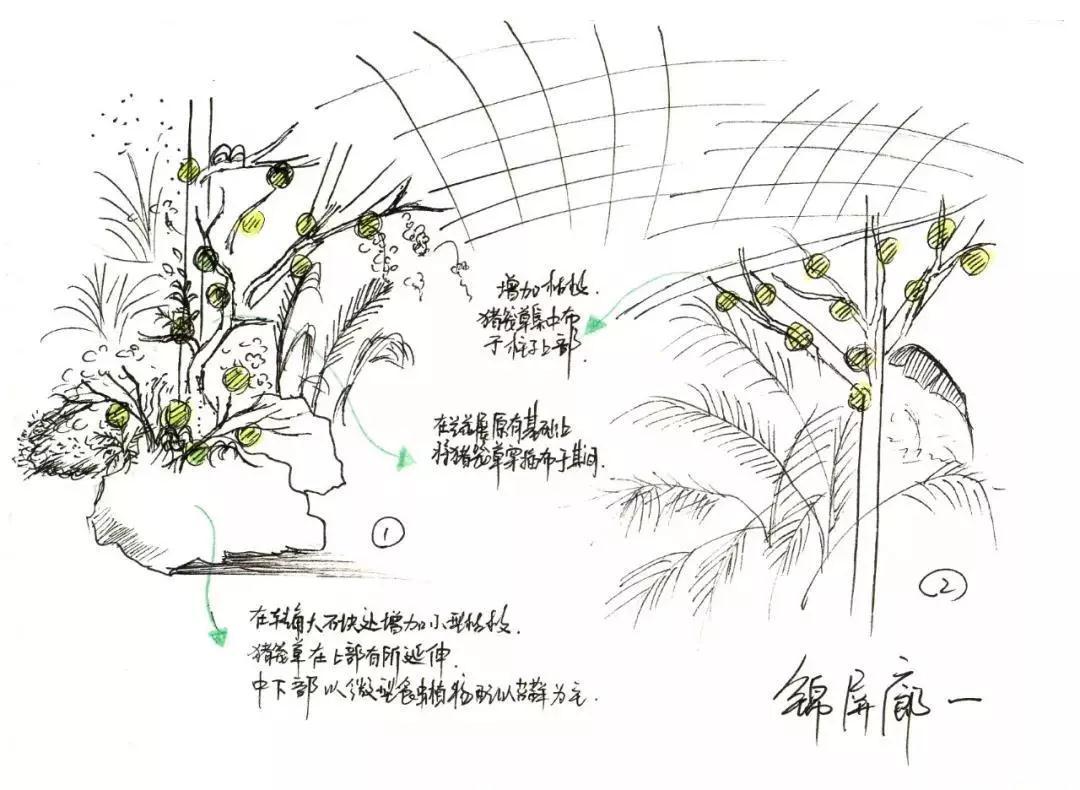 增加枯枝.
猪笼草集中布
于柱子上部.
在兰花展原有基础上
将猪笼草穿插布于其间.
①
②
在转角大石块处增加小型枯枝.
猪笼草在上部有所延伸.
中下部以微型食虫植物配以苔藓为主.
锦屏廊一